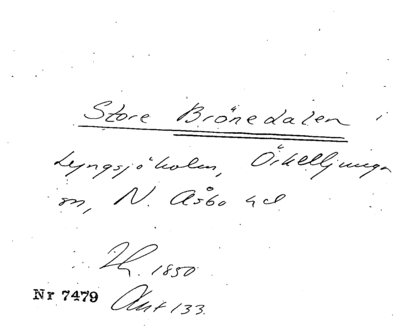 Store Brönedalen i
Lyngsjöholen, Örkelljunga
sn, N. Åsbo hd
1850
Nr 7479 Ant 133.